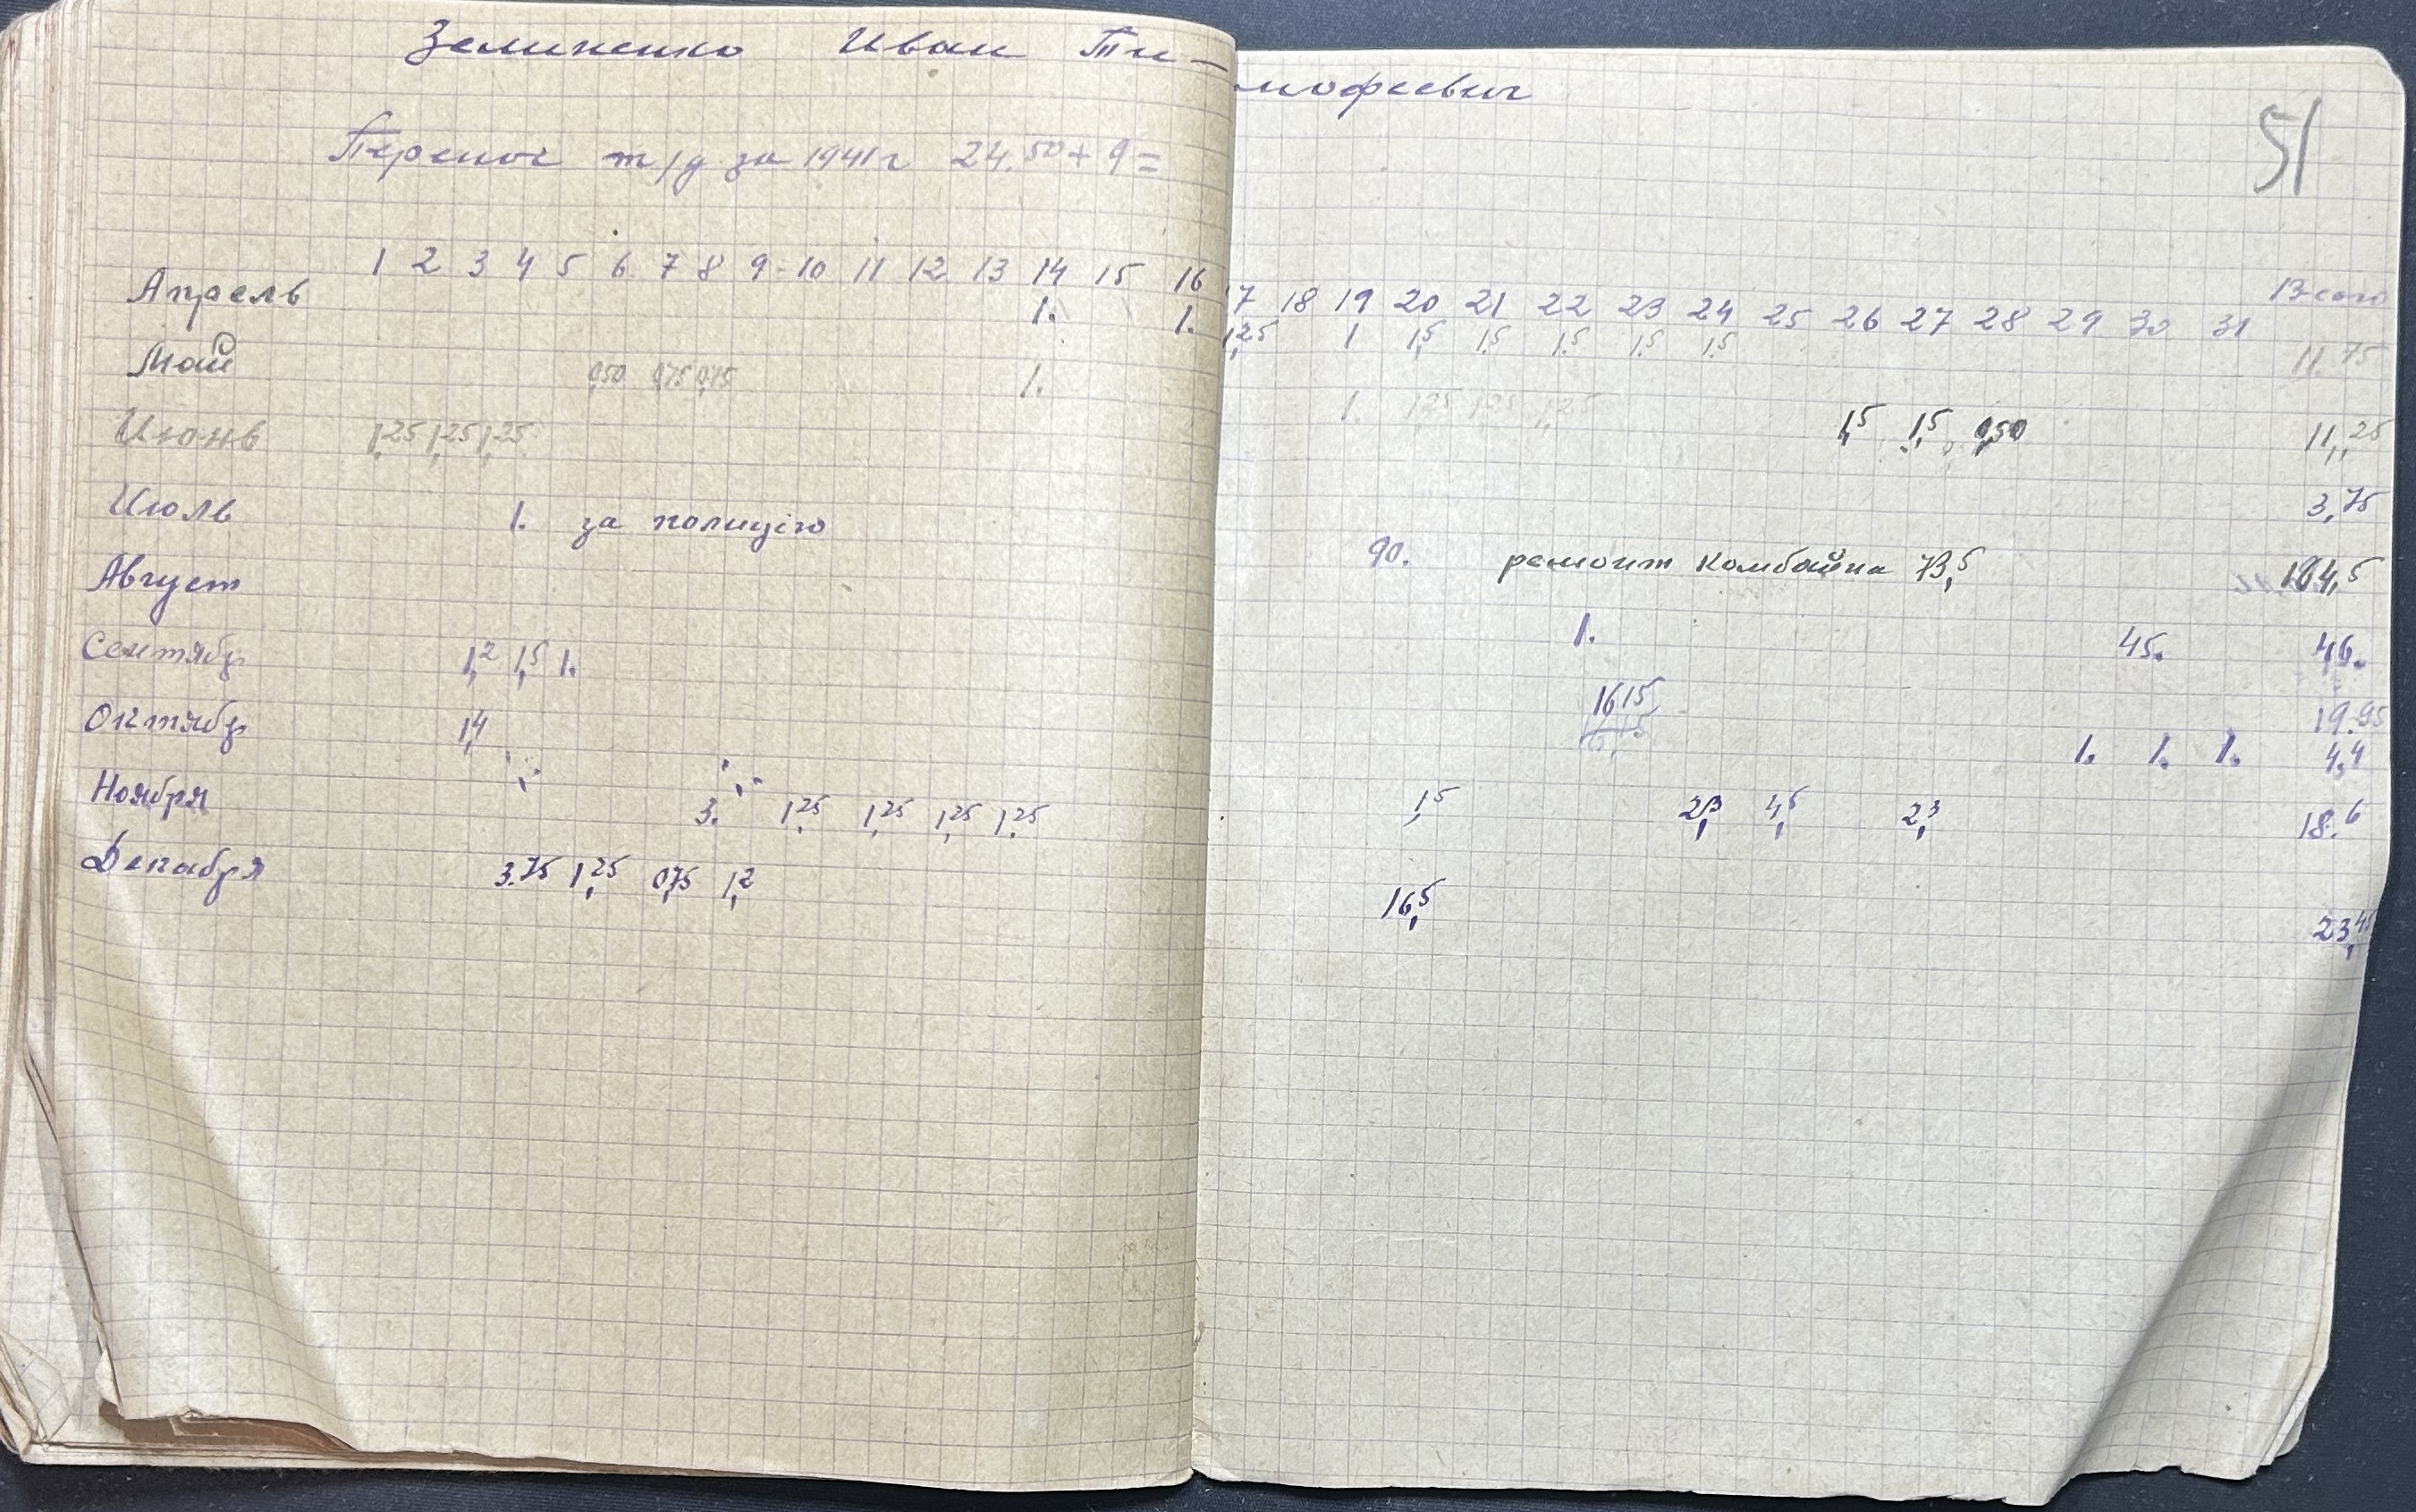 Зелиненко Иван Ти-мофеевич
51
Перенос т/д за 1941 г 24.50 + 9 =
1 2 3 4 5 6 7 8 9 10 11 12 13 14 15 16 17 18 19 20 21 22 23 24 25 26 27 28 29 30 31 Всего
Апрель 1. 1. 1,25 1 1,5 1,5 1,5 1,5 1,5 11.75
Май 0,50 0,75 0,75 1. 1. 1,25 1,25 1,25 1,5 1,5 0,50 11,25
Июнь 1,25 1,25 1,25 3,75
Июль 1. за полицiю 90. ремонт комбайна 73,5 164,5
Август 1. 45. 46.
Сентябр 1,2 1,5 1. 16 15 19.95
Октябр 1,4 1. 1. 1. 4,4
Ноября 3. 1,25 1,25 1,25 1,25 1,5 2,3 4,5 2,3 18.6
Декабря 3.75 1,25 0,75 1,2 16,5 23,45